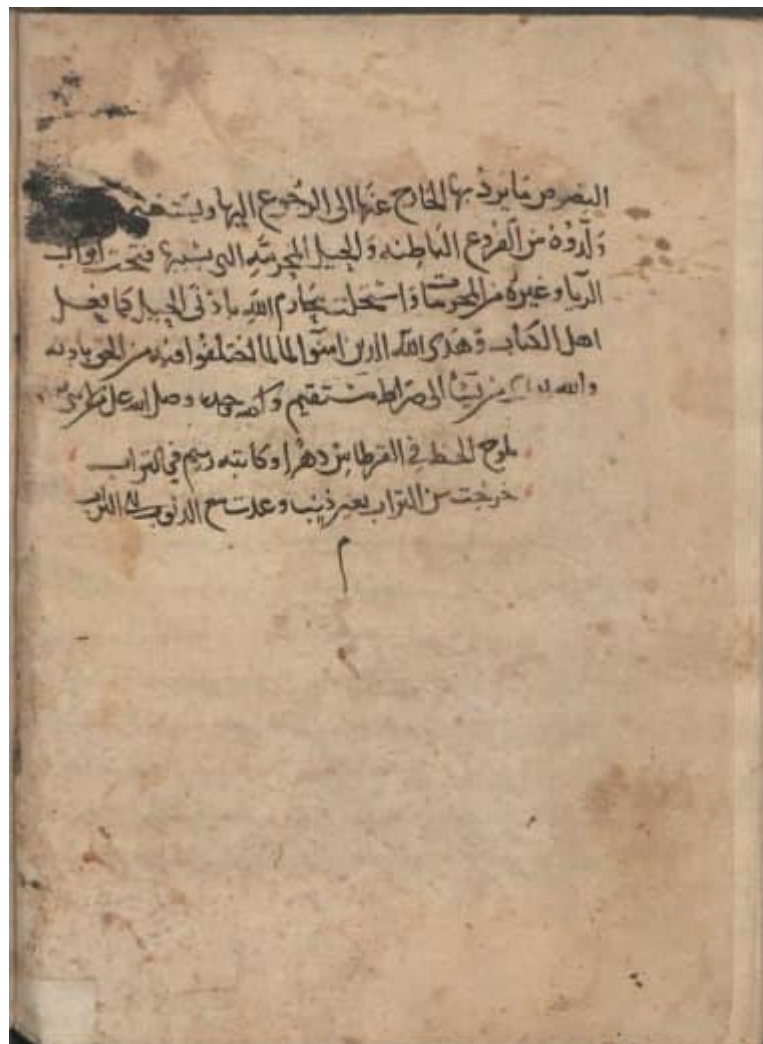 النصوص ما يرد بها الخارج عنها الى الرجوع اليها ويستغني
ولدوه من الفروع الباطنه والحيل المحرمة التي بسببها فتحت ابواب
الربا وغيره من المحرمات واستحلت محارم الله بادنى الحيل كما فعل
اهل الكتاب وهدى الله الذين امنوا لما اختلفوا فيه من الحق باذنه
والله يهدي من يشا الى صراط مستقيم وصلى الله على
يلوح الخط في القرطاس دهرا وكاتبه رميم في التراب
خرجت من التراب بغير ذنب وعدت مع الذنوب الى التراب
م